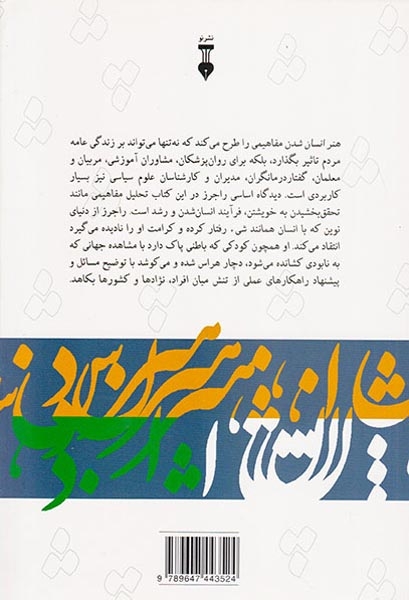 نشر نو
هنر انسان شدن مفاهیمی را طرح می‌کند که نه‌تنها می‌تواند بر زندگی عامه
مردم تاثیر بگذارد، بلکه برای روان‌پزشکان، مشاوران آموزشی، مربیان و
معلمان، گفتاردرمانگران، مدیران و کارشناسان علوم سیاسی نیز بسیار
کاربردی است. دیدگاه اساسی راجرز در این کتاب تحلیل مفاهیمی مانند
تحقق‌بخشیدن به خویشتن، فرآیند انسان‌شدن و رشد است. راجرز از دنیای
نوین که با انسان همانند شی، رفتار کرده و کرامت او را نادیده می‌گیرد
انتقاد می‌کند. او همچون کودکی که باطنی پاک دارد با مشاهده جهانی که
به نابودی کشانده می‌شود، دچار هراس شده و می‌کوشد با توضیح مسائل و
پیشنهاد راهکارهای عملی از تنش میان افراد، نژادها و کشورها بکاهد.
9 789647 443524